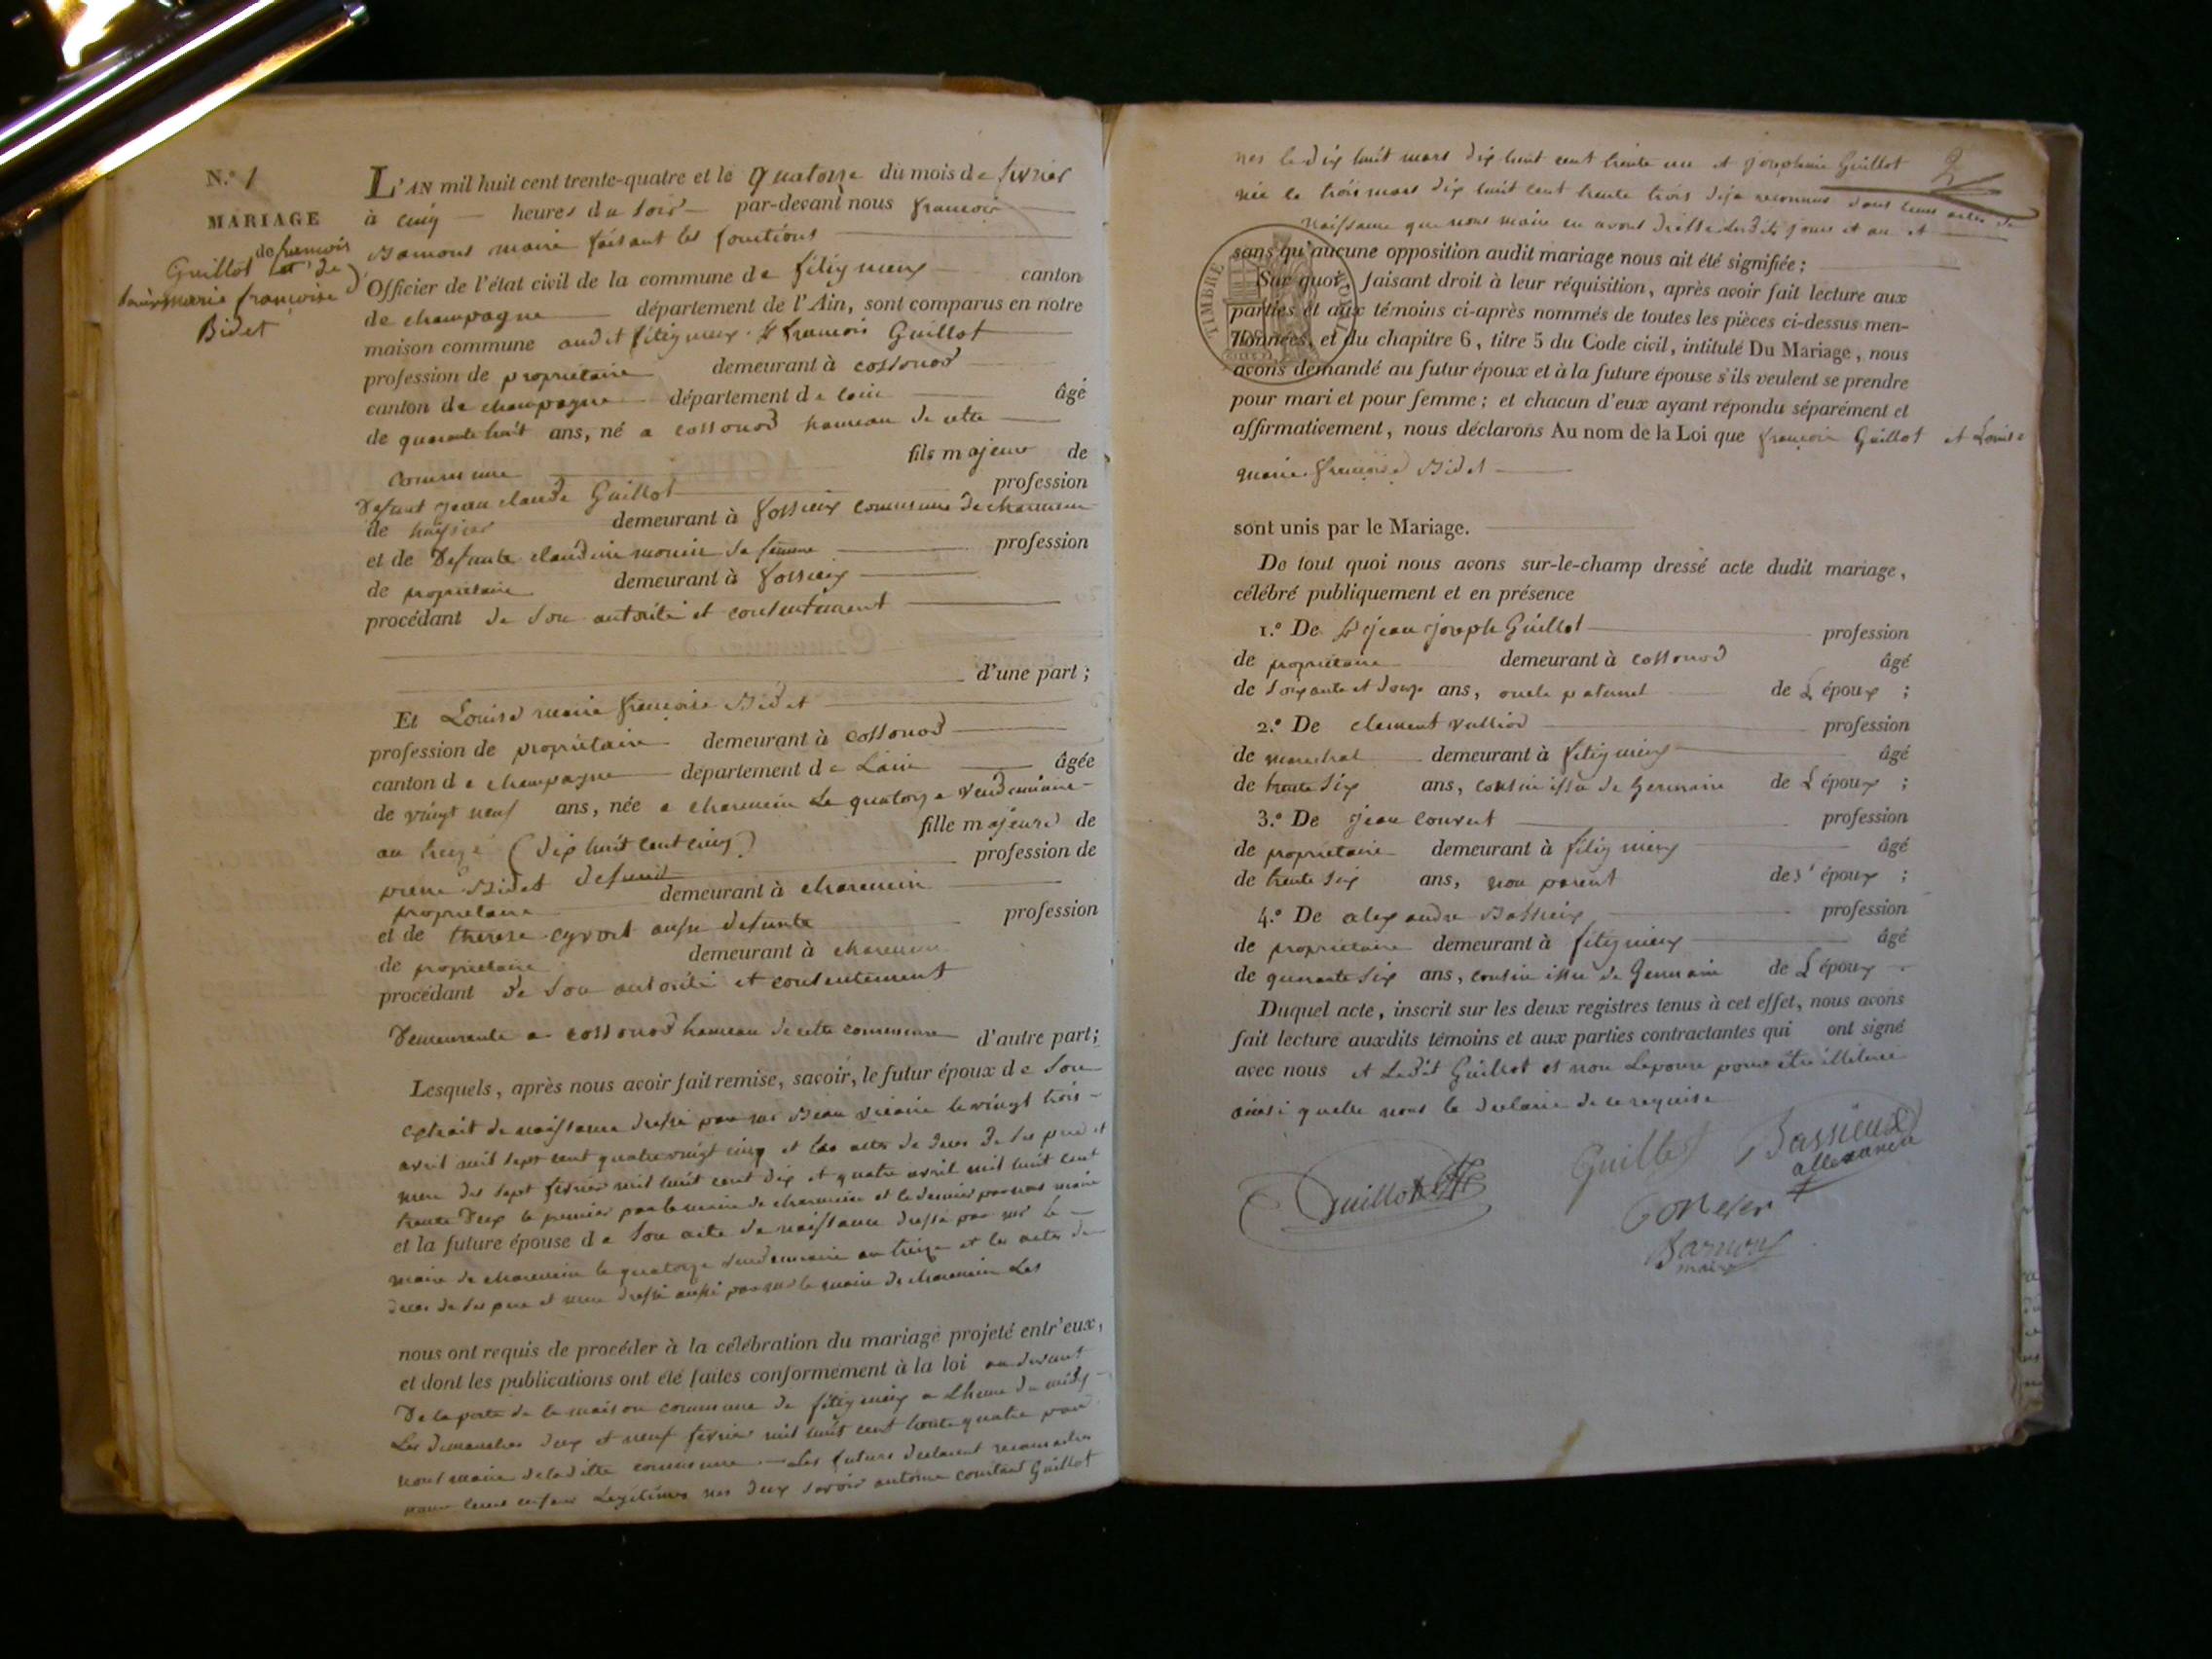 N.º 1
MARIAGE
de françois
Guillot et de
Louise marie françoise
Bidet
L'AN mil huit cent trente-quatre et le quatorse du mois de fevrier
à cinq heures du soir par-devant nous françois
Barnous maire faisant les fonctions
Officier de l'état civil de la commune de fitignieux canton
de champagne département de l'Ain, sont comparus en notre
maison commune audit fitignieux Sr françois Guillot
profession de propriétaire demeurant à cossonod
canton de champagne département de lain âgé
de quarante huit ans, né a cossonod hameau de cette
commune fils majeur de
Defunt jean claude Guillot profession
de huissier demeurant à fossieux commune de charancin
et de Defunte claudine monin sa femme profession
de propriétaire demeurant à fossieux
procédant de son autorité et consentement
d'une part ;
Et Louise marie françoise Bidet
profession de propriétaire demeurant à cossonod
canton de champagne département de Lain âgée
de vingt neuf ans, née a charencin Le quatorze vendemiaire
an treize (dix huit cent cinq) fille majeure de
pierre Bidet defunt profession de
propriétaire demeurant à charencin
et de therese cyvoct aussi defunte profession
de propriétaire demeurant à charencin
procédant de son autorité et consentement
Demeurante a cossonod hameau de cette commune d'autre part ;
Lesquels, après nous avoir fait remise, savoir, le futur époux de son
extrait de naissance dressé par mr Béau vicaire le vingt trois
avril mil sept cent quatre vingt cinq et les actes de deces de ses pere et
mere des sept fevrier mil huit cent dix et quatre avril mil huit cent
trente Deux le premier par le maire de charencin et le dernier par nous maire
et la future épouse de son acte de naissance dressé par mr le
maire de charencin le quatorze vendemiaire an treize et les actes de
deces de ses pere et mere dressé aussi par mr le maire de charencin Les
nous ont requis de procéder à la célébration du mariage projeté entr'eux,
et dont les publications ont été faites conformément à la loi au devant
De la porte de la maison commune de fitignieux a Lheure de midy
Les dimanches deux et neuf fevrier mil huit cent trente quatre par
nous maire de la ditte commune Les futurs declarent reconnaitre
pour leurs enfans Legitimes nes deux savoir antoine constant Guillot
nes le dix huit mars dix huit cent trente un et josephine Guillot 2
née le trois mars dix huit cent trente trois deja reconnus dans leurs actes de
naissance que nous maire en avons dressé lesdits jours et an et
sans qu'aucune opposition audit mariage nous ait été signifiée ;
TIMBRE ROYAL
Sur quoi, faisant droit à leur réquisition, après avoir fait lecture aux
parties et aux témoins ci-après nommés de toutes les pièces ci-dessus men-
tionnées, et du chapitre 6, titre 5 du Code civil, intitulé Du Mariage, nous
avons demandé au futur époux et à la future épouse s'ils veulent se prendre
pour mari et pour femme ; et chacun d'eux ayant répondu séparément et
affirmativement, nous déclarons Au nom de la Loi que françois Guillot et Louise
marie françoise Bidet
sont unis par le Mariage.
De tout quoi nous avons sur-le-champ dressé acte dudit mariage,
célébré publiquement et en présence
1.º De Sr jean joseph Guillot profession
de propriétaire demeurant à cossonod âgé
de soixante et douze ans, oncle paternel de L époux ;
2.º De clement valliod profession
de marechal demeurant à fitignieux âgé
de trente six ans, cousin issu de Germain de L époux ;
3.º De jean convert profession
de propriétaire demeurant à fitignieux âgé
de trente six ans, non parent des époux ;
4.º De alexandre Bassieux profession
de propriétaire demeurant à fitignieux âgé
de quarante six ans, cousin issu de Germain de L époux
Duquel acte, inscrit sur les deux registres tenus à cet effet, nous avons
fait lecture auxdits témoins et aux parties contractantes qui ont signé
avec nous et Ledit Guillot et non Lepouse pour être illiteré
ainsi quelle nous la declaré de ce requise
Guillot Guillot Bassieux
allexandre
Conver
Barnou
maire